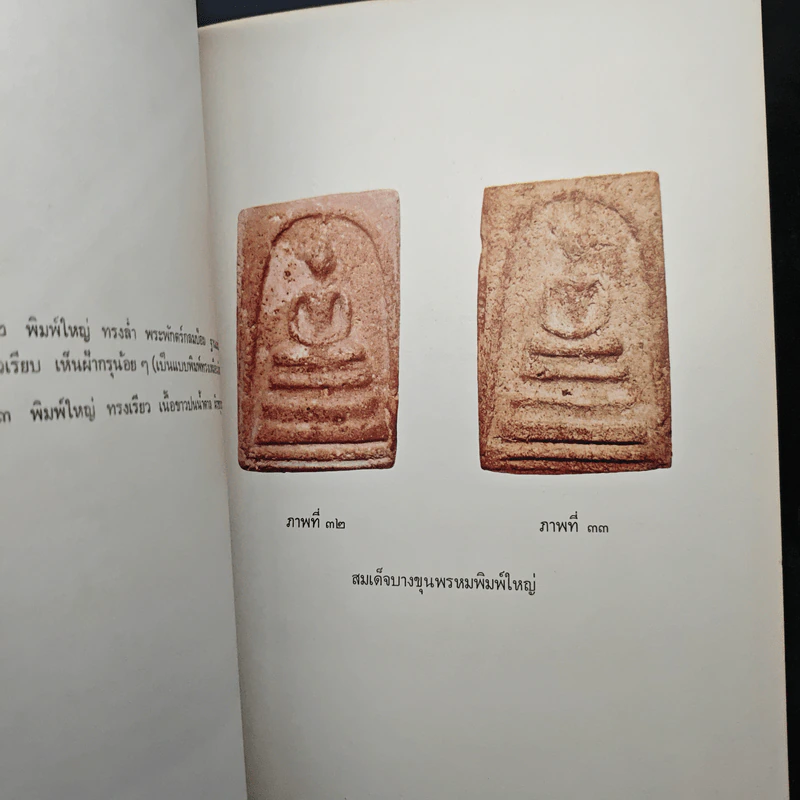 ๒ พิมพ์ใหญ่ ทรงล่ำ พระพักตร์กลมป้อม
เรียบ เห็นฝ้ากรุน้อย ๆ (เป็นแบบพิมพ์
๓ พิมพ์ใหญ่ ทรงเรียว เนื้อขาวปนน้ำตาล
ภาพที่ ๓๒
ภาพที่ ๓๓
สมเด็จบางขุนพรหมพิมพ์ใหญ่